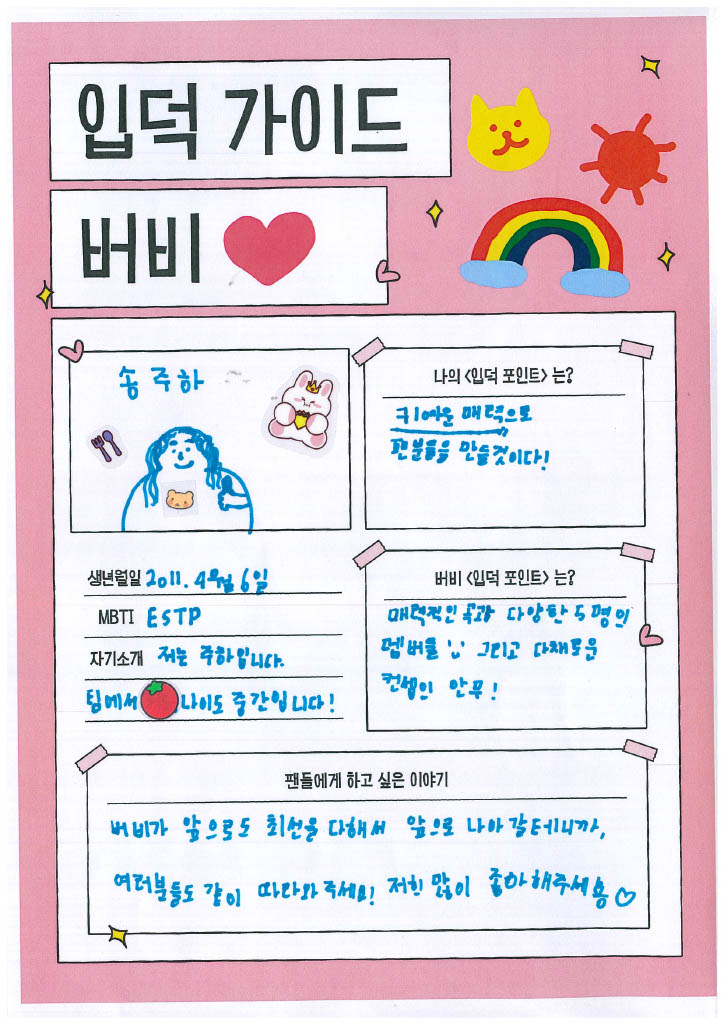 입덕 가이드
버비
송주하
생년월일 2011. 4월 6일
MBTI ESTP
자기소개 저는 주하입니다.
팀에서 나이도 중간입니다!
나의 <입덕 포인트> 는?
귀여운 매력으로
팬분들을 만들것이다!
버비 <입덕 포인트> 는?
매력적인 곡과 다양한 5명의
멤버들 그리고 다채로운
컨셉의 안무!
팬들에게 하고 싶은 이야기
버비가 앞으로도 최선을 다해서 앞으로 나아갈테니까,
여러분들도 같이 따라와주세요! 저희 많이 좋아해주세용♡